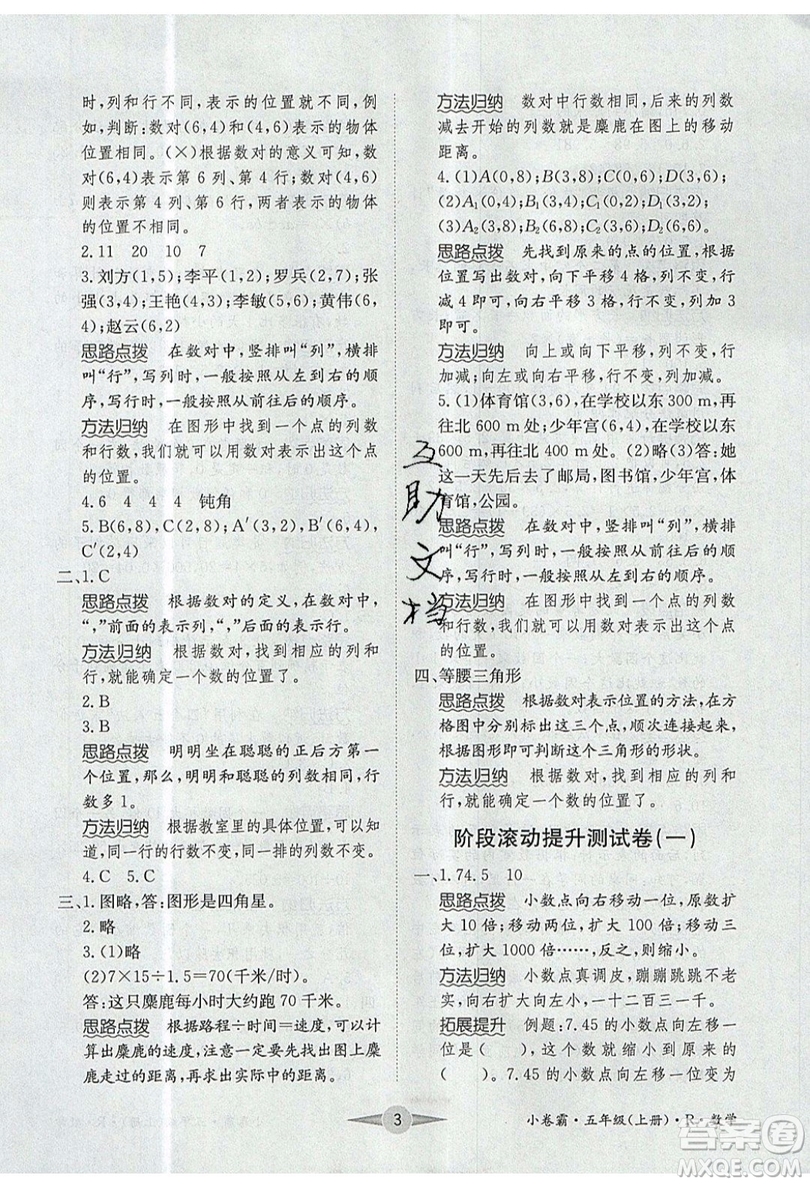 时,列和行不同,表示的位置就不同,例
如,判断:数对(6,4)和(4,6)表示的物体
位置相同。(×)根据数对的意义可知,数
对(6,4)表示第 6 列、第 4 行,数对(4,6)
则表示第 4 列、第 6 行,两者表示的物体
的位置不同。
2.11 20 10 7
3.刘方(1,5);李平(1,2);罗兵(3,2);张
强(3,4);王艳(4,3);李敏(5,6);黄伟(6,
4);赵云(6,2)
思路点拨 在数对中,竖排叫“列”,横排
叫“行”,写列时,一般按照从左到右的顺
序,写行时,一般按照从前往后的顺序。
方法归纳 在图形中找到一个点的列数
和行数,我们就可以用数对表示出这个点
的位置。
4.6 4 4 4 钝角
5.B(6,8);C(2,8);A′(3,2),B′(6,4),
C′(2,4)
二、1.C
思路点拨 根据数对的定义,在数对中,
“,”前面的表示列,“,”后面的表示行。
方法归纳 根据数对,找到相应的列和
行,就能确定一个数的位置了。
2.B
3.B
思路点拨 明明坐在聪聪的正后方第一
个位置,那么,明明和聪聪的列数相同,行
数多 1。
方法归纳 根据教室里的具体位置,可以知
道,同一行的行数不变,同一排的列数不变。
4.C 5.C
三、1.图略,答:图形是四角星。
2.略
3.(1)略
(2)7×15÷1.5=70(千米/时)。
答:这只麋鹿每小时大约跑 70 千米。
思路点拨 根据路程÷时间=速度,可以计
算出麋鹿的速度,这里一定要先求出图上麋
鹿走过的距离,再求出实际中的距离。
方法归纳 数对中行数相同,后来的列数
减去开始的列数就是麋鹿在图上的移动
距离。
4.(1)A(0,8) B(3,8) C(3,6)
(2)A₁(0,4) B₁(3,4) C₁(3,2)
(3)A₂(3,8) B₂(6,8) D(6,6)。
思路点拨 先找到原来的点的位置,根据
位置写出数对,向下平移 4 格,列不变,行
减 4 即可,向右平移 3 格,行不变,列加 3
即可。
方法归纳 向上或向下平移,列不变,行
加减;向左或向右平移,行不变,列加减。
5.(1)体育馆(3,6),在学校以东 300 m,
再往北 600 m 处;少年宫(6,4),在学校以东
600 m,再往北 400 m 处。(2)略(3)答:她
这一天先后去了邮局,图书馆,少年宫,体
育馆,公园。
思路点拨 在数对中,竖排叫“列”,横排
叫“行”,写列时,一般按照从左到右的顺
序,写行时,一般按照从前往后的顺序。
方法归纳 在图形中找到一个点的列数
和行数,我们就可以用数对表示出这个点
的位置。
四、等腰三角形
思路点拨 根据数对表示位置的方法,在方
格图中分别标出这三个点,顺次连接起来,
根据图形即可判断这个三角形的形状。
方法归纳 根据数对,找到相应的列和
行,就能确定一个数的位置了。
阶段滚动提升测试卷(一)
一、1.74.5 10
思路点拨 小数点向右移动一位,原数扩
大 10 倍;移动两位,扩大 100 倍;移动三
位,扩大 1000 倍……,反之,则缩小。
方法归纳 小数点真调皮,蹦蹦跳跳不老
实,向右扩大左缩小,一十二百三一千。
拓展提升 例题:7.45 的小数点向左移一
位是( ),这个数就缩小到原来的
( )。7.45 的小数点向左移一位变为
互助文档
3
小卷霸·五年级(上册)·R·数学
答案圈
MXQE.COM